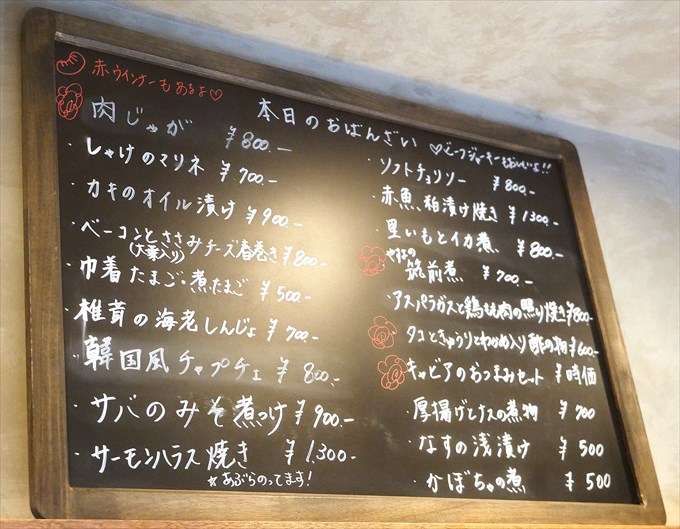 赤ウインナーもあるよ♡
本日のおばんざい
♡ビーフジャーキーもおいしいよ!!
肉じゃが ¥800.-
・しゃけのマリネ ¥700.-
・カキのオイル漬け ¥900.-
・ベーコンとささみチーズ春巻き ¥800.-
(大葉入り)
・巾着たまご・煮たまご ¥500.-
・椎茸の海老しんじょ ¥700.-
・韓国風チャプチェ ¥800.-
・サバのみそ煮つけ ¥900.-
・サーモンハラス焼き ¥1,300.-
☆あぶらのってます!
・ソフトチョリソー ¥800.-
・赤魚、粕漬け焼き ¥1300.-
・里いもとイカ煮 ¥800.-
筑前煮 ¥700.-
・アスパラガスと鶏もも肉の照り焼き ¥800-
タコときゅうりとわかめ入り酢の物 ¥600-
キャビアのおつまみセット ¥時価
・厚揚げとナスの煮物 ¥700
・なすの浅漬け ¥500
・かぼちゃの煮 ¥500